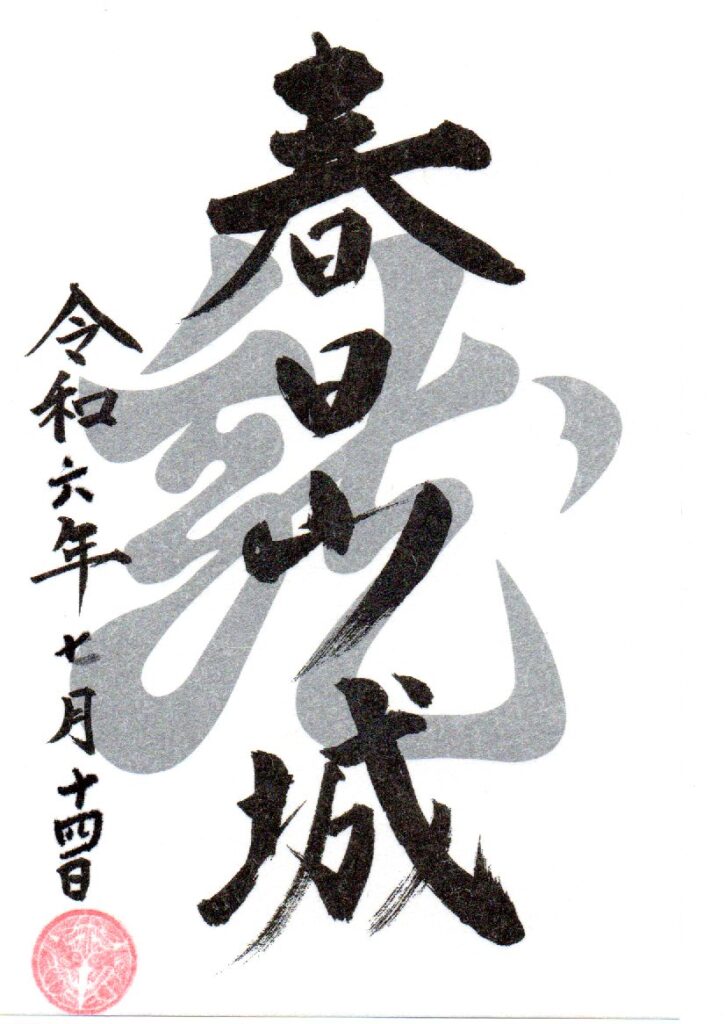 春日山城
龍
令和六年七月十四日